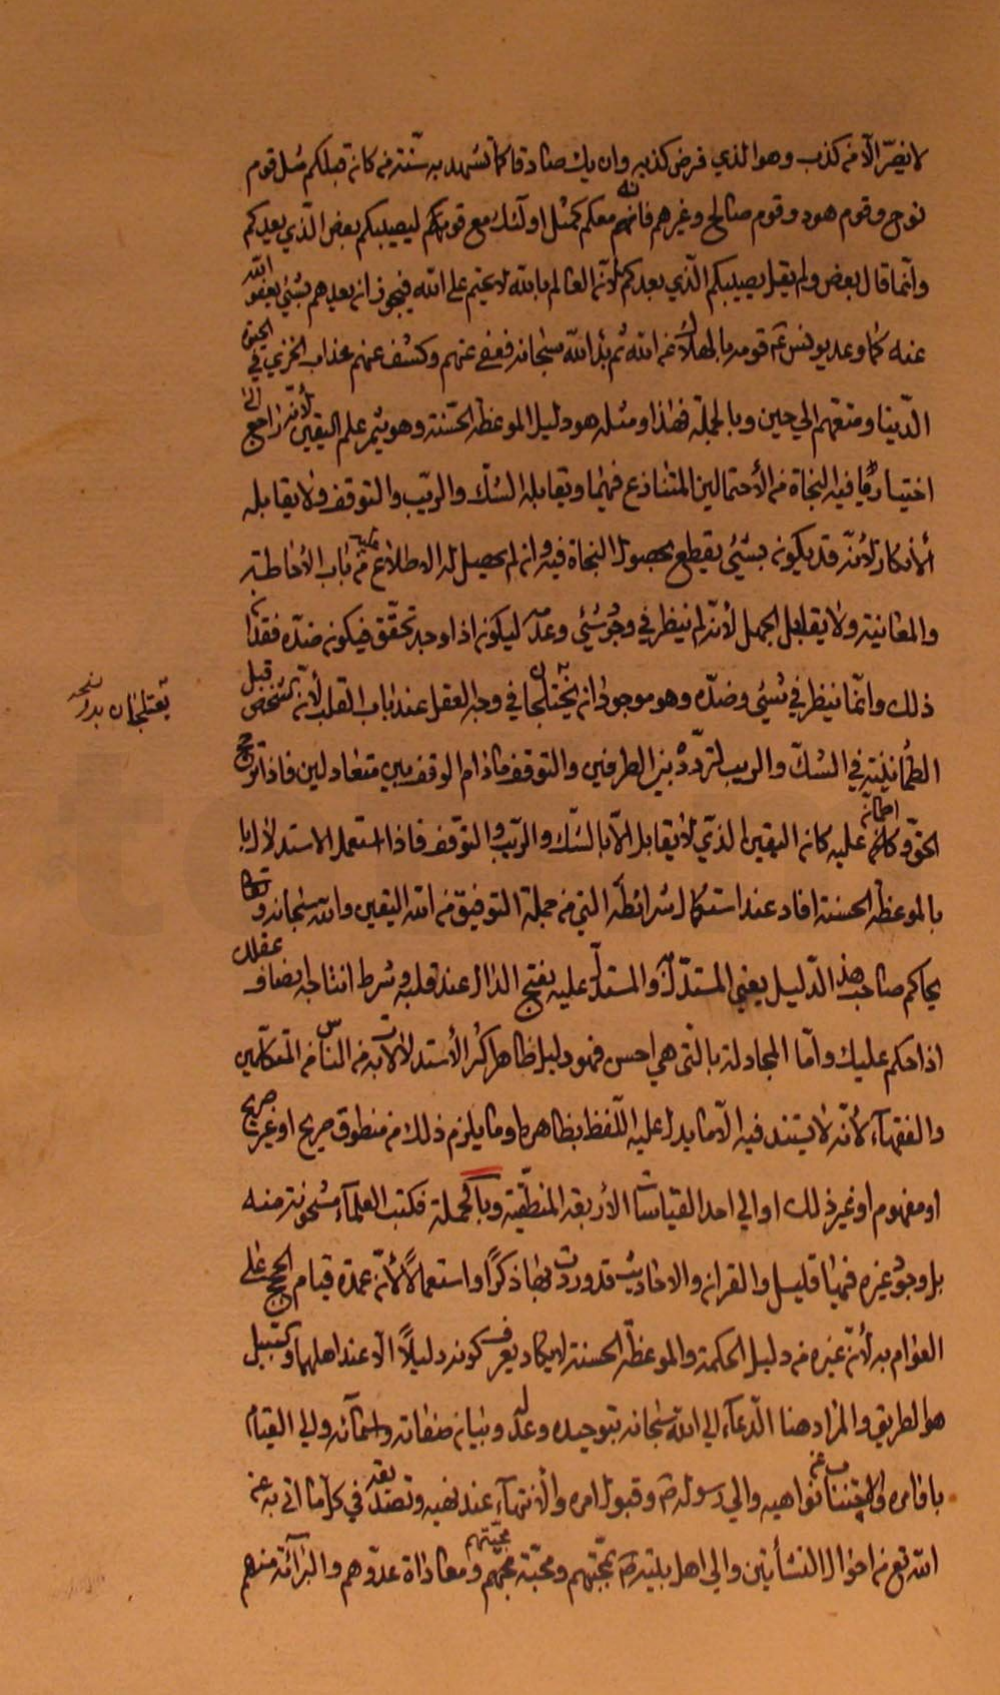 لا يضرّ الّا من كذب وهو الذي فرض كذبه وان يك صادقا كما تشهد به سنّة من كان قبلكم مثل قوم
نوح وقوم هود وقوم صالح وغيرهم فانّه معكم كمثل اولئك مع قومهم ليصيبكم بعض الّذي يعدكم
وانّما قال بعض ولم يقل يصيبكم الّذي يعدكم لانّ العالم بالله لا يحتم على الله فيجوز ان يعدهم بشئ يعفو الله
عنه كما وعد يونس ع قومه بالهلاك عن الله ثم بدا لله سبحانه فعفى عنهم وكشف عنهم عذاب الخزي في الحيوة
الدّنيا ومتّعهم الى حين وبالجملة فهذا ومثله هو دليل الموعظة الحسنة وهو يثمر علم اليقين لأنّه راجع الى
اختيار ما فيه النجاة من الأحتمالين المتنازع فيهما ويقابله الشكّ والريب والتوقف ولا يقابله
الأنكار لأنّه قد يكون بشئ يقطع بحصول النجاة فيه وان لم يحصل له الاطلاع عليه من باب الأحاطة
والمعاينة ولا يقابل الجهل لأنّه لم ينظر في وجود شئ وعدمه ليكون اذا وجد تحقّق فيكون ضدّه فقدان
ذلك وانّما ينظر في شئ وضدّه وهو موجود ان يختلجا في وجه العقل عند باب القلب لأنّه تشخص قبل
الطمأنينة في الشكّ والريب لتردّده بين الطرفين والتوقف ما دام الوقف بين متعادلين فاذا ترجّح
الحقّ وكان اطمأنّ عليه كان اليقين الذي لا يقابل الّا بالشكّ والريب والتوقف فاذا استعمل الاستدلال با
بالموعظة الحسنة افاد عند استكمال شرائطه التي من جملة التوفيق من الله اليقين والله سبحانه وتعالى
يحاكم صاحب هذ الدّليل يعني المستدلّ والمستدلّ عليه بفتح الدال عند قلبه وشرط انتاجه انصاف عقلك
اذا حكم عليك وامّا المجادلة بالّتي هي احسن فهو دليل ظاهر اكثر الأستدلالات به من الناس من المتكلّمين
والفقهاء لأنّه لا يستند فيه الّا ما يدلّ عليه اللّفظ بظاهره او ما يلزم ذلك من منطوق صريح او غير صريح
او مفهوم او غير ذلك او الى احد القياسات الأربعة المنطقيّة وبالجملة فكتب العلماء مشحونة منه
بل وجود غيره فيها قليل والقران والاحاديث قد وردت بهذا ذكرًا واستعمالًا لأنّه عمدة قيام الحجج على
العوام به لأنّ غيره من دليل الحكمة والموعظة الحسنة لا يكاد يعرف كونه دليلًا الّا عند اهلهما والسّبيل
هو الطريق والمراد هنا الدّعاء الى الله سبحانه بتوحيده وعدله وبيان صفاته واسمائه والى القيام
باوامره والاجتناب عن نواهيه والى رسوله ص وقبول امره والأنتهاء عند نهيه وتصديقه في كل ما اتى به عن
الله تع من احوال النشأتين والى اهل بيته ع بمحبّتهم ومحبّة محبّيهم ومعاداة عدوّهم والبرائة منهم